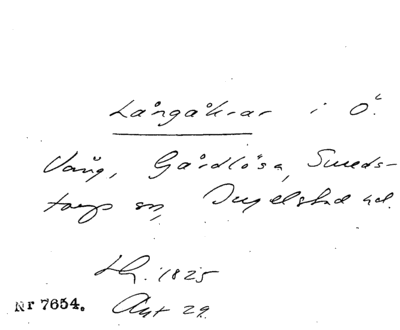 Långåkrar i Ö.
Vång, Gårdlösa, Smeds-
torp sn, Ingelstad hd.
LH. 1825
Nr 7654. Akt 29.